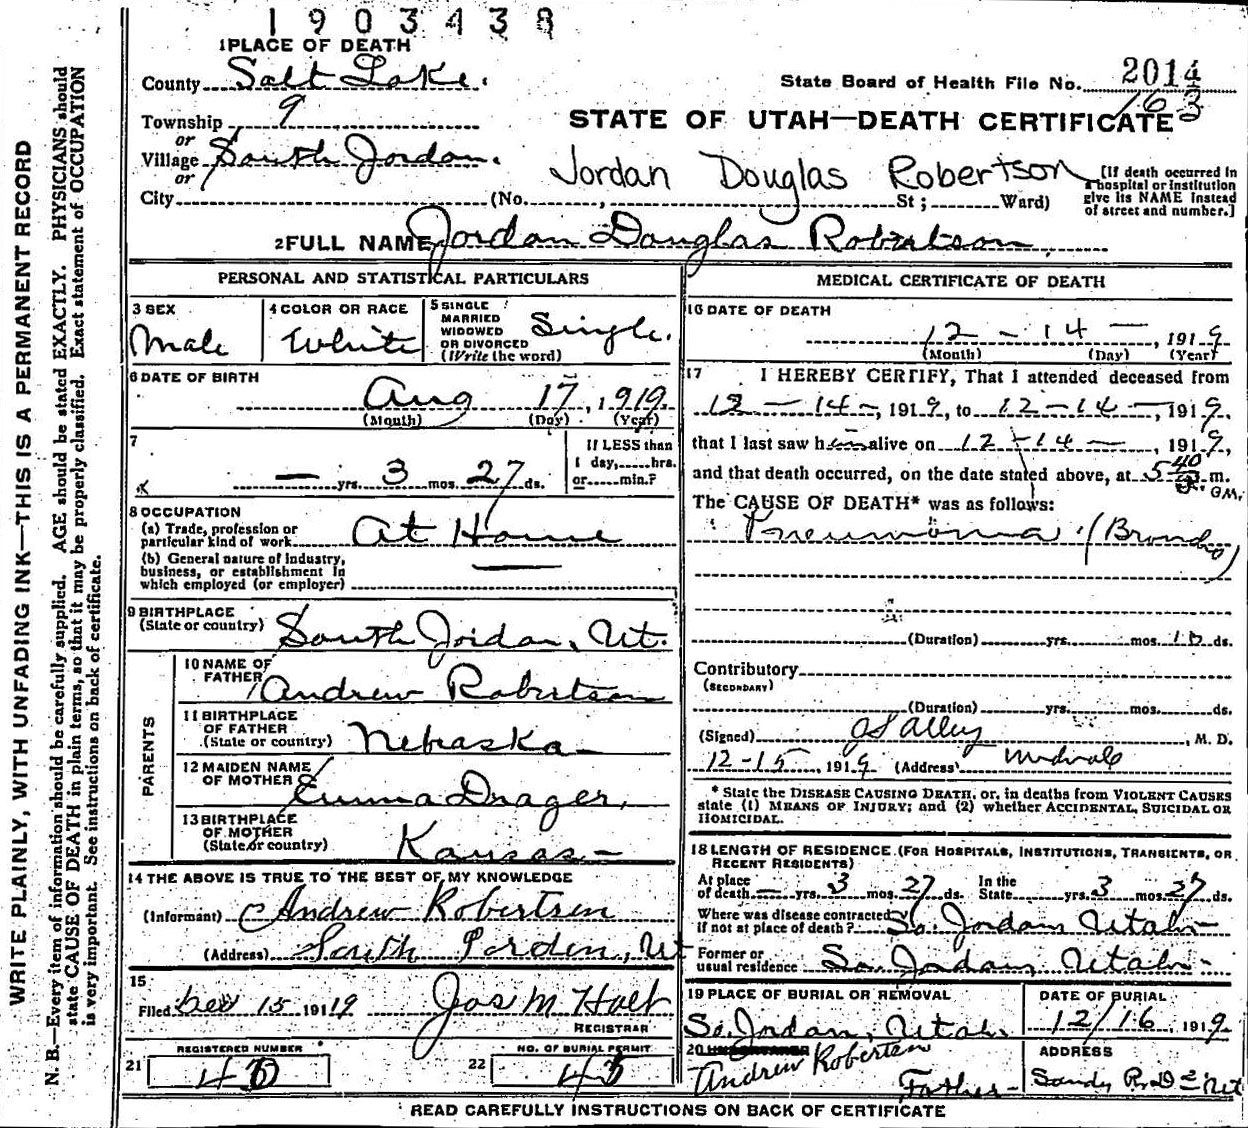 1903438
1 PLACE OF DEATH
County Salt Lake.
State Board of Health File No. 2014
163
Township 9
STATE OF UTAH—DEATH CERTIFICATE
or
Village South Jordan.
or
Jordan Douglas Robertson
[If death occurred in a hospital or institution give its NAME instead of street and number.]
City (No. , St ; Ward)
2 FULL NAME Jordan Douglas Robertson
PERSONAL AND STATISTICAL PARTICULARS
3 SEX
Male
4 COLOR OR RACE
White
5 SINGLE
MARRIED
WIDOWED
OR DIVORCED
(Write the word)
Single.
6 DATE OF BIRTH
Aug 17, 1919.
(Month) (Day) (Year)
7
If LESS than
1 day, hrs.
or min.?
— yrs. 3 mos. 27 ds.
8 OCCUPATION
(a) Trade, profession or
particular kind of work
At Home
(b) General nature of industry,
business, or establishment in
which employed (or employer)
—
9 BIRTHPLACE
(State or country) South Jordan, Ut.
PARENTS
10 NAME OF
FATHER Andrew Robertson
11 BIRTHPLACE
OF FATHER
(State or country) Nebraska —
12 MAIDEN NAME
OF MOTHER Emma Drager,
13 BIRTHPLACE
OF MOTHER
(State or country) Kansas —
14 THE ABOVE IS TRUE TO THE BEST OF MY KNOWLEDGE
(Informant) Andrew Robertsen
(Address) South Jorden, Ut
15
Filed Dec 15 1919 Jas M Holt
REGISTRAR
REGISTERED NUMBER
21
NO. OF BURIAL PERMIT
22
MEDICAL CERTIFICATE OF DEATH
16 DATE OF DEATH
12 — 14 —, 1919
(Month) (Day) (Year)
17 I HEREBY CERTIFY, That I attended deceased from
12 — 14 —, 1919, to 12 — 14 —, 1919,
that I last saw him alive on 12 — 14 —, 1919,
and that death occurred, on the date stated above, at 5 40 a. m.
The CAUSE OF DEATH* was as follows:
Pneumonia (Broncho)
(Duration) yrs. mos. 10 ds.
Contributory
(SECONDARY)
(Duration) yrs. mos. ds.
(Signed) , M. D.
12-15, 1919 (Address) Midvale
* State the DISEASE CAUSING DEATH, or, in deaths from VIOLENT CAUSES
state (1) MEANS OF INJURY; and (2) whether ACCIDENTAL, SUICIDAL OR
HOMICIDAL.
18 LENGTH OF RESIDENCE (FOR HOSPITALS, INSTITUTIONS, TRANSIENTS, OR
RECENT RESIDENTS)
At place In the
of death — yrs. 3 mos. 27 ds. State yrs. 3 mos. 27 ds.
Where was disease contracted
if not at place of death? So. Jordan Utah —
Former or
usual residence So. Jordan, Utah —
19 PLACE OF BURIAL OR REMOVAL
So. Jordan, Utah.
DATE OF BURIAL
12/16, 1919.
20 UNDERTAKER
Andrew Robertsen
Father —
ADDRESS
Sandy R.D 2 Ut
READ CAREFULLY INSTRUCTIONS ON BACK OF CERTIFICATE
WRITE PLAINLY, WITH UNFADING INK—THIS IS A PERMANENT RECORD
N. B.—Every item of information should be carefully supplied. AGE should be stated EXACTLY. PHYSICIANS should
state CAUSE OF DEATH in plain terms, so that it may be properly classified. Exact statement of OCCUPATION
is very important. See instructions on back of certificate.